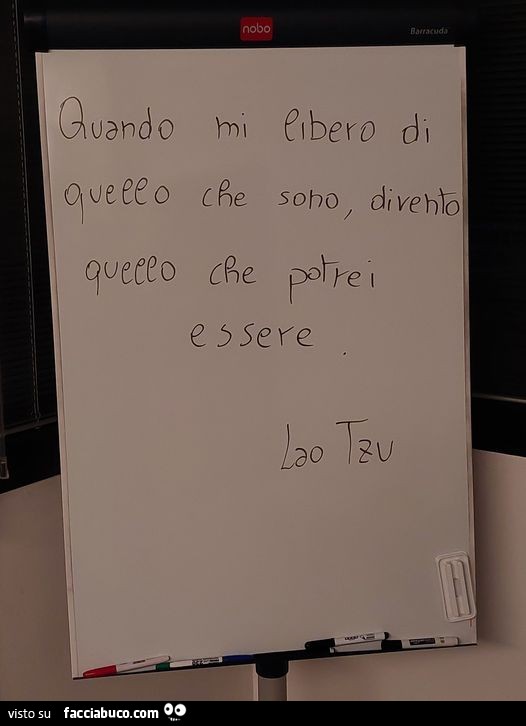 nobo
Barracuda
Quando mi libero di
quello che sono, divento
quello che potrei
essere.
Lao Tzu
visto su facciabuco.com